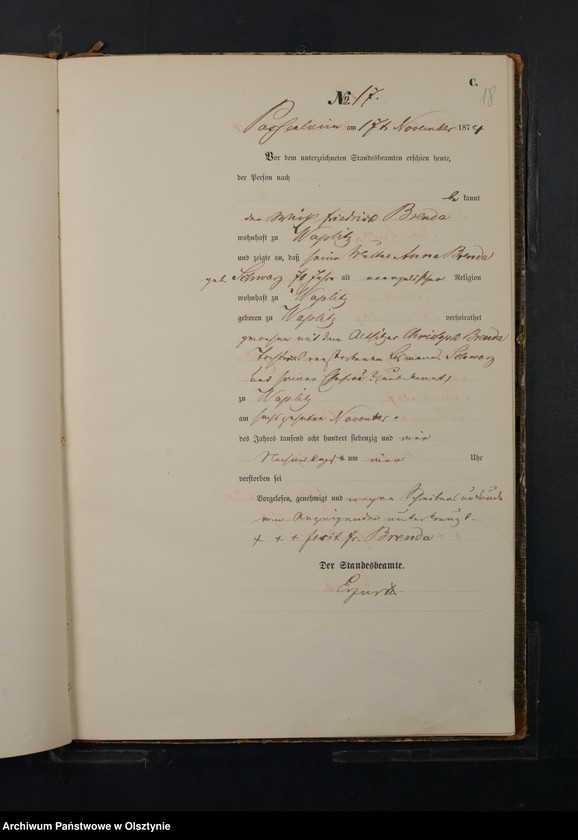 C.
18
No. 17.
Passenheim am 17t November 1874
Vor dem unterzeichneten Standesbeamten erschien heute,
der Person nach
be kannt
der Wirth Friedrich Brenda
wohnhaft zu Waplitz
und zeigte an, daß seine Mutter Anna Brenda
geb. Schwarz 70 Jahre alt evangelischer Religion
wohnhaft zu Waplitz
geboren zu Waplitz verheirathet
gewesen mit dem Altsitzer Christoph Brenda
Tochter des verstorbenen Schwarz
und seiner Ehefrau unbekannt,
zu Waplitz
am sechszehnten November
des Jahres tausend acht hundert siebenzig und vier
Nachmittags um vier Uhr
verstorben sei
Vorgelesen, genehmigt und wegen Schreibensunkunde
vom Anzeigenden unterkreuzt.
+ + + fecit Fr. Brenda
Der Standesbeamte.
Archiwum Państwowe w Olsztynie